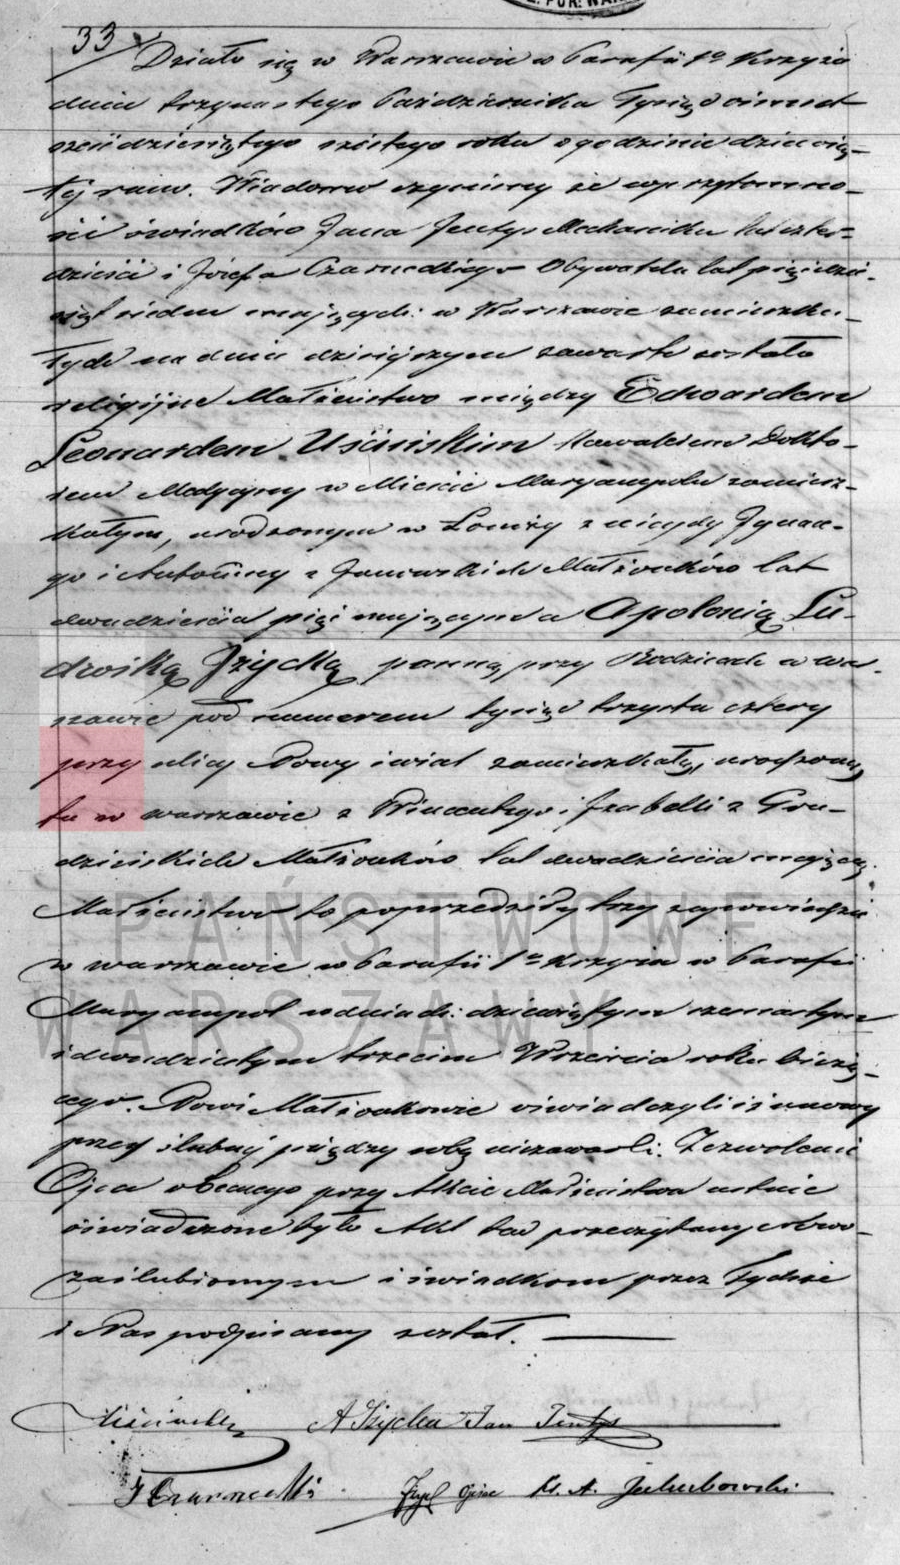 33
Działo się w Warszawie w Parafii Sº Krzyża
dnia trzynastego Października Tysiąc ośmset
sześćdziesiątego szóstego roku o godzinie dziewią-
tej rano. Wiadomo czynimy że w przytomno-
ści świadków Jana Jentys Mechanika lat czter-
dzieści i Józefa Czarneckiego Obywatela lat pięćdzie-
siąt siedm mających w Warszawie zamieszka-
łych na dniu dzisiejszym zawarte zostało
religijne Małżeństwo między Edwardem
Leonardem Uścińskim Kawalerem Dokto-
rem Medycyny w Mieście Maryampolu zamiesz-
kałym, urodzonym w Łomży z niegdy Ignac-
go i Antoniny z Janowskich Małżonków lat
dwadzieścia pięć mającym a Apolonią Lu-
dwiką Izycką panną, przy Rodzicach w War-
szawie pod numerem tysiąc trzysta cztery
przy ulicy Nowy świat zamieszkałą, urodzoną
tu w Warszawie z Wincentego i Izabelli z Gru-
dzińskich Małżonków lat dwadzieścia mającą.
Małżeństwo to poprzedziły trzy zapowiedzie
w Warszawie w Parafii Sº Krzyża w Parafii
Maryampol w dniach: dziewiątym szesnastym
i dwudziestym trzecim Września roku bieżą-
cego. Nowi Małżonkowie oświadczyli iż umowy
przed ślubnej między sobą niezawarli. Zezwolenie
Ojca obecnego przy Akcie Małżeństwa ustnie
oświadczone było Akt ten przeczytany Nowo-
zaślubionym i świadkom przez Tychże
i Nas podpisany został.
Uściński A Izycka Jan Jentys
J Czarnecki Izycki Ojciec X. A. Jakubowski
PAŃSTWOWE
WARSZAWY